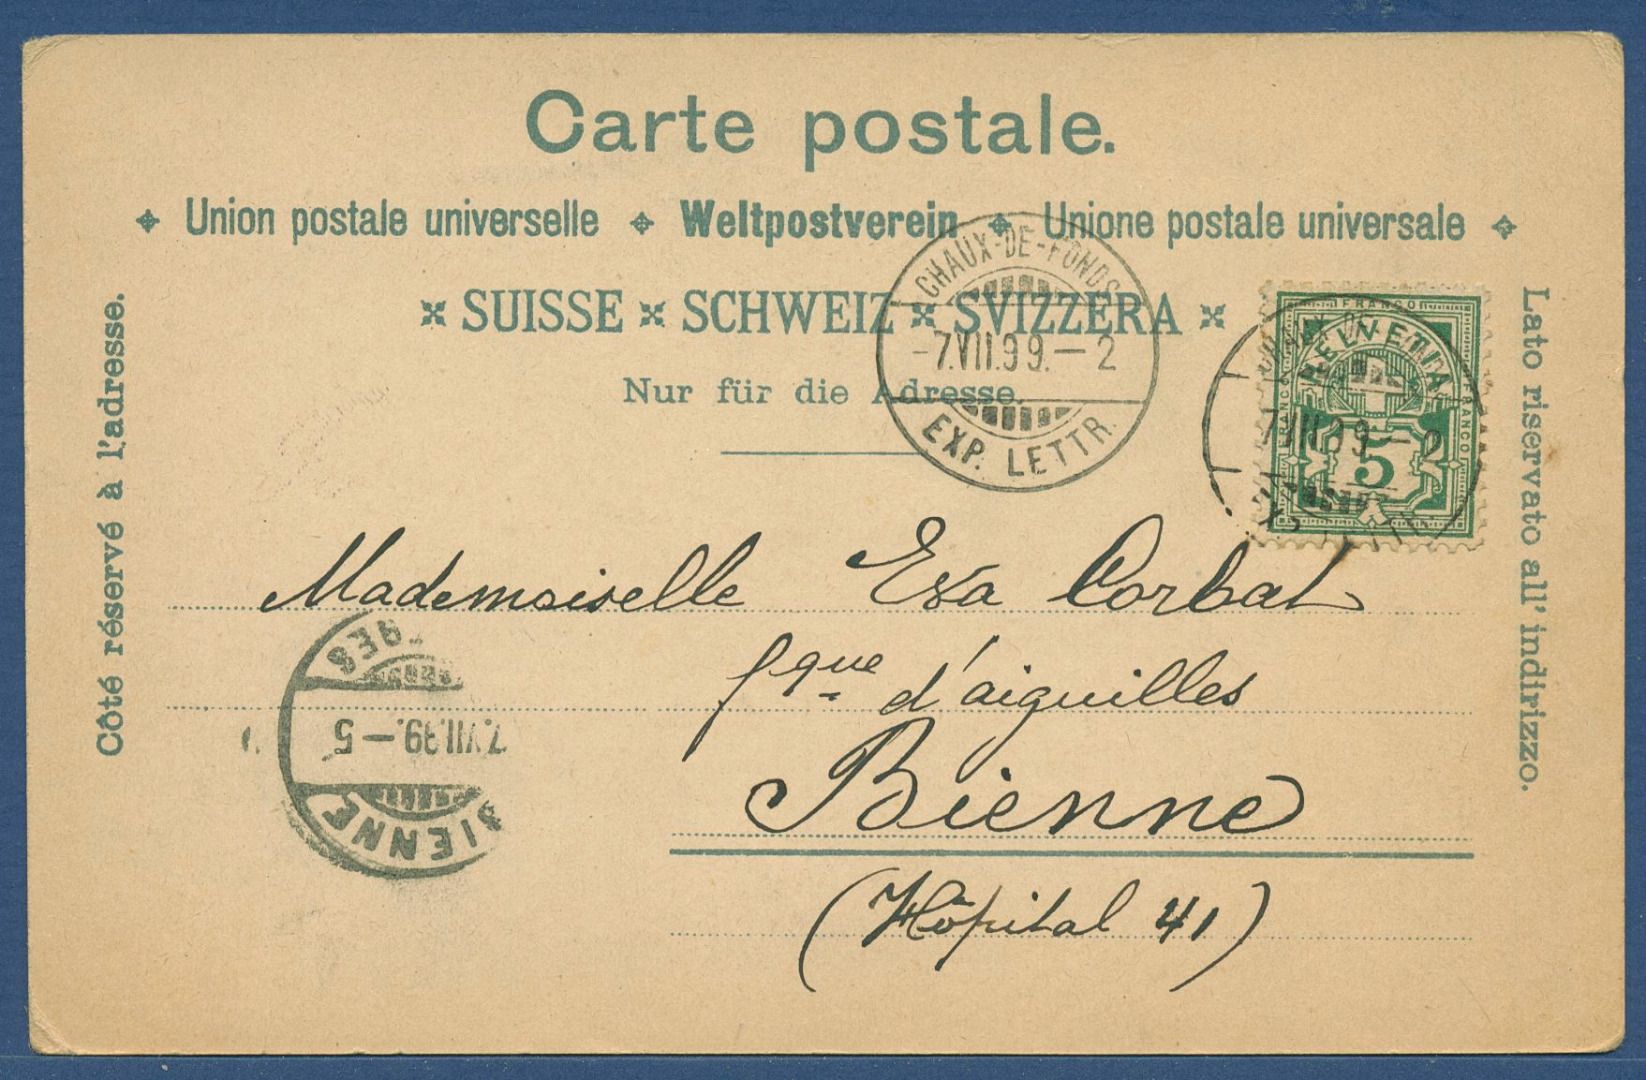 Carte postale.
Union postale universelle Weltpostverein Unione postale universale
SUISSE SCHWEIZ SVIZZERA
Nur für die Adresse.
Côté réservé à l'adresse.
Lato riservato all' indirizzo.
CHAUX-DE-FONDS
-7.VII.99.-2
EXP. LETTR.
FRANCO
HELVETIA
FRANCO
FRANCO
5
7.VII.99-2
Mademoiselle Eva Corbat
fque d'aiguilles
Bienne
(Hôpital 41)
7.VII.99.-5
BIENNE